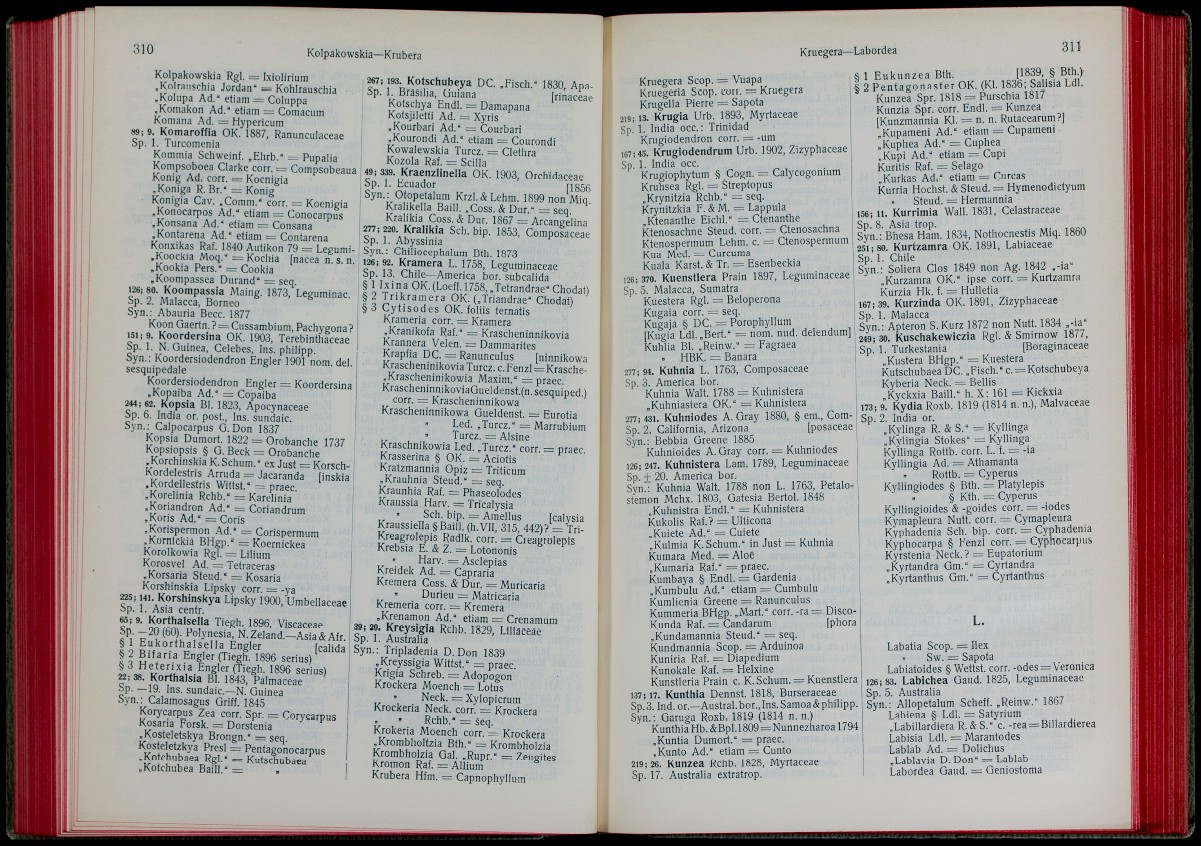 310
Kolpakowskia—Krubera
Kolpakowskia Rgl. = Ixiolirium
„Kolrauschia Jordan“ = Kohlrauschia
„Kolupa Ad.“ etiam = Coluppa
„Komakon Ad.“ etiam = Comacum
Komana Ad. = Hypericum
89; 9. Komaroffia OK. 1887, Ranunculaceae
Sp. 1. Turcomenia
Kommia Schweinf. „Ehrb.“ = Pupalia
Kompsoboea Clarke corr. = Compsobeaua
Konig Ad. corr. = Koenigia
„Koniga R. Br.“ = Konig
Konigia Cav. „Comm.“ corr. = Koenigia
„Konocarpos Ad.“ etiam = Conocarpus
„Konsana Ad.“ etiam = Consana
„Kontarena Ad.“ etiam = Contarena
Konxikas Raf. 1840 Autikon 79 = Legumi-
„Koockia Moq.“ = Kochia [nacea n. s. n.
„Kookia Pers.“ = Cookia
„Koompassea Durand“ = seq.
126; 80. Koompassia Maing. 1873, Leguminac.
Sp. 2. Malacca, Borneo
Syn.: Abauria Becc. 1877
Koon Gaertn.? = Cussambium, Pachygona?
151; 9. Koordersina OK. 1903, Terebinthaceae
Sp. 1. N. Guinea, Celebes, Ins. philipp.
Syn.: Koordersiodendron Engler 1901 nom. del.
sesquipedale
Koordersiodendron Engler = Koordersina
„Kopaiba Ad.“ = Copaiba
244; 62. Kopsia Bl. 1823, Apocynaceae
Sp. 6. India or. post., Ins. sundaic.
Syn.: Calpocarpus G. Don 1837
Kopsia Dumort. 1822 = Orobanche 1737
Kopsiopsis § G. Beck = Orobanche
„Korchinskia K. Schum.“ ex Just = Korsch-
Kordelestris Arruda = Jacaranda [inskia
„Kordellestris Wittst.“ = praec.
„Korelinia Rchb.“ = Karelinia
„Koriandron Ad.“ = Coriandrum
„Koris Ad.“ = Coris
„Korispermon Ad.“ = Corispermum
„Kornickia BHgp.“ = Koernickea
Korolkowia Rgl. = Lilium
Korosvel Ad. = Tetraceras
„Korsaria Steud.“ = Kosaria
Korshinskia Lipsky corr. = -ya
225; 141. Korshinskya Lipsky 1900, Umbellaceae
Sp. 1. Asia centr.
65; 9. Korthalsella Tiegh. 1896, Viscaceae
Sp. —20 (60). Polynesia, N. Zeland.—Asia & Afr.
§ 1 Eukorthalsella Engler [calida
§ 2 Bifaria Engler (Tiegh. 1896 serius)
§ 3 Heterixia Engler (Tiegh. 1896 serius)
22; 38. Korthalsia Bl. 1843, Palmaceae
Sp. —19. Ins. sundaic.—N. Guinea
Syn.: Calamosagus Griff. 1845
Korycarpus Zea corr. Spr. = Corycarpus
Kosaria Forsk. = Dorstenia
„Kosteletskya Brongn.“ = seq.
Kosteletzkya Presl = Pentagonocarpus
„Kotchubaea Rgl.“ = Kutschubaea
„Kotchubea Baill.“ = „
267; 193. Kotschubeya DC. „Fisch.“ 1830, Apa-
Sp. 1. Brasilia, Guiana [rinaceae
Kotschya Endl. = Damapana
Kotsjiletti Ad. = Xyris
„Kourbari Ad.“ = Courbari
„Kourondi Ad.“ etiam = Courondi
Kowalewskia Turcz. = Clethra
Kozola Raf. = Scilla
49; 339. Kraenzlinella OK. 1903, Orchidaceae
Sp. 1. Ecuador [1856
Syn.: Otopetalum Krzl. & Lehm. 1899 non Miq.
Kralikella Baill. „Coss. & Dur.“ = seq.
Kralikia Coss. & Dur. 1867 = Arcangelina
277; 220. Kralikia Sch. bip. 1853, Composaceae
Sp. 1. Abyssinia
Syn.: Chiliocephalum Bth. 1873
126; 92. Kramera L. 1758, Leguminaceae
Sp. 13. Chile—America bor. subcalida
§ 1 Ixina OK. (Loefl. 1758, „Tetrandrae“ Chodat)
§ 2 Trikramera OK. („Triandrae“ Chodat)
§ 3 Cytisodes OK. foliis ternatis
Krameria corr. = Kramera
„Kranikofa Raf.“ = Krascheninnikovia
Krannera Velen. = Dammarites
Krapfia DC. = Ranunculus [ninnikowa
Krascheninikovia Turcz. c. Fenzl = Krasche-
„Krascheninikowia Maxim.“ = praec.
KrascheninnikoviaGueldenst.(n. sesquiped.)
corr. = Krascheninnikowa
Krascheninnikowa Gueldenst. = Eurotia
„ Led. „Turcz.“ = Marrubium
„ Turcz. = Alsine
Kraschnikowia Led. „Turcz.“ corr. = praec.
Krasserina § OK. = Aciotis
Kratzmannia Opiz = Triticum
„Krauhnia Steud.“ = seq.
Kraunhia Raf. = Phaseolodes
Kraussia Harv. = Tricalysia
„ Sch. bip. = Amellus [calysia
Kraussiella § Baill. (h. VII, 315, 442)? = Tri-
Kreagrolepis Radlk. corr. = Creagrolepis
Krebsia E. & Z. = Lotononis
„ Harv. = Asclepias
Kreidek Ad. = Capraria
Kremera Coss. & Dur. = Muricaria
„ Durieu = Matricaria
Kremeria corr. = Kremera
„Krenamon Ad.“ etiam = Crenamum
39; 20. Kreysigia Rchb. 1829, Liliaceae
Sp. 1. Australia
Syn.: Tripladenia D. Don 1839
„Kreyssigia Wittst.“ = praec.
Krigia Schreb. = Adopogon
Krockera Moench = Lotus
„ Neck. = Xylopicrum
Krockeria Neck. corr. = Krockera
„ „ Rchb.“ = seq.
Krokeria Moench corr. = Krockera
„Krombholtzia Bth.“ = Krombholzia
Krombholzia Gal. „Rupr.“ = Zeugites
Kromon Raf. = Allium
Krubera Hfm. = Capnophyllum
Kruegera—Labordea
311
Kruegera Scop. = Vuapa
Kruegeria Scop. corr. = Kruegera
Krugella Pierre = Sapota
219; 13. Krugia Urb. 1893, Myrtaceae
Sp. 1. India occ.: Trinidad
Krugiodendron corr. = -um
167; 45. Krugiodendrum Urb. 1902, Zizyphaceae
Sp. 1. India occ.
Krugiophytum § Cogn. = Calycogonium
Kruhsea Rgl. = Streptopus
„Krynitzia Rchb.“ = seq.
Krynitzkia F. & M. = Lappula
„Ktenanthe Eichl.“ = Ctenanthe
Ktenosachne Steud. corr. = Ctenosachna
Ktenospermum Lehm. c. = Ctenospermum
Kua Med. = Curcuma
Kuala Karst. & Tr. = Esenbeckia
126; 370. Kuenstlera Prain 1897, Leguminaceae
Sp. 5. Malacca, Sumatra
Kuestera Rgl. = Beloperona
Kugaia corr. = seq.
Kugaja § DC. = Porophyllum
[Kugia Ldl. „Bert.“ = nom. nud. delendum]
Kuhlia Bl. „Reinw.“ = Fagraea
„ HBK. = Banara
277; 94. Kuhnia L. 1763, Composaceae
Sp. 3. America bor.
Kuhnia Walt. 1788 = Kuhnistera
„Kuhniastera OK.“ = Kuhnistera
277; 431. Kuhniodes A. Gray 1880, § em., Com-
Sp. 2. California, Arizona [posaceae
Syn.: Bebbia Greene 1885
Kuhnioides A. Gray corr. = Kuhniodes
126; 247. Kuhnistera Lam. 1789, Leguminaceae
Sp. ± 20. America bor.
Syn.: Kuhnia Walt. 1788 non L. 1763, Petalo-
stemon Mchx. 1803, Gatesia Bertol. 1848
„Kuhnistra Endl.“ = Kuhnistera
Kukolis Raf.? = Ulticona
„Kuiete Ad.“ = Cuiete
„Kulmia K. Schum.“ in Just = Kuhnia
Kumara Med. = Aloë
„Kumaria Raf.“ = praec.
Kumbaya § Endl. = Gardenia
„Kumbulu Ad.“ etiam = Cumbulu
Kumlienia Greene = Ranunculus
Kummeria BHgp. „Mart.“ corr. -ra = Disco-
Kunda Raf. = Candarum [phora
„Kundamannia Steud.“ = seq.
Kundmannia Scop. = Arduinoa
Kuniria Raf. = Diapedium
Kunokale Raf. = Helxine
Kunstleria Prain c. K. Schum. = Kuenstlera
137; 17. Kunthia Dennst. 1818, Burseraceae
Sp. 3. Ind. or.—Austral. bor., Ins. Samoa & philipp.
Syn.: Garuga Roxb. 1819 (1814 n. n.)
Kunthia Hb. & Bpl. 1809 = Nunnezharoa 1794
„Kuntia Dumort.“ = praec.
„Kunto Ad.“ etiam = Cunto
219; 26. Kunzea Rchb. 1828, Myrtaceae
Sp. 17. Australia extratrop.
§ 1 Eukunzea Bth. [1839, § Bth.)
§ 2 Pentagonaster OK. (Kl. 1836; Salisia Ldl.
Kunzea Spr. 1818 = Purschia 1817
Kunzia Spr. corr. Endl. = Kunzea
[Kunzmannia Kl. = n. n. Rutacearum?]
„Kupameni Ad.“ etiam = Cupameni
„Kuphea Ad.“ = Cuphea
„Kupi Ad.“ etiam = Cupi
Kuritis Raf. = Selago
„Kurkas Ad.“ etiam = Curcas
Kurria Hochst. & Steud. = Hymenodictyum
„ Steud. = Hermannia
156; 11. Kurrimia Wall. 1831, Celastraceae
Sp. 8. Asia trop.
Syn.: Bhesa Ham. 1834, Nothocnestis Miq. 1860
251; 80. Kurtzamra OK. 1891, Labiaceae
Sp. 1. Chile
Syn.: Soliera Clos 1849 non Ag. 1842 „-ia“
„Kurzamra OK.“ ipse corr. = Kurtzamra
Kurzia Hk. f. = Hulletia
167; 39. Kurzinda OK. 1891, Zizyphaceae
Sp. 1. Malacca
Syn.: Apteron S. Kurz 1872 non Nutt. 1834 „-ia“
249; 30. Kuschakewiczia Rgl. & Smirnow 1877,
Sp. 1. Turkestania [Boraginaceae
„Kustera BHgp.“ = Kuestera
Kutschubaea DC. „Fisch.“ c. = Kotschubeya
Kyberia Neck. = Bellis
„Kyckxia Baill.“ h. X: 161 = Kickxia
173; 9. Kydia Roxb. 1819 (1814 n. n.), Malvaceae
Sp. 2. India or.
„Kylinga R. & S.“ = Kyllinga
„Kylingia Stokes“ = Kyllinga
Kyllinga Rottb. corr. L. f. = -ia
Kyllingia Ad. = Athamanta
„ Rottb. = Cyperus
Kyllingiodes § Bth. = Platylepis
„ § Kth. = Cyperus
Kyllingioides & -goides corr. = -iodes
Kymapleura Nutt. corr. = Cymapleura
Kyphadenia Sch. bip. corr. = Cyphadenia
Kyphocarpa § Fenzl corr. = Cyphocarpus
Kyrstenia Neck.? = Eupatorium
„Kyrtandra Gm.“ = Cyrtandra
„Kyrtanthus Gm.“ = Cyrtanthus
L.
Labatia Scop. = Ilex
„ Sw. = Sapota
Labiatoides § Wettst. corr. -odes = Veronica
126; 83. Labichea Gaud. 1825, Leguminaceae
Sp. 5. Australia
Syn.: Allopetalum Scheff. „Reinw.“ 1867
Labiena § Ldl. = Satyrium
„Labillardiera R. & S.“ c. -rea = Billardierea
Labisia Ldl. = Marantodes
Lablab Ad. = Dolichus
„Lablavia D. Don“ = Lablab
Labordea Gaud. = Geniostoma